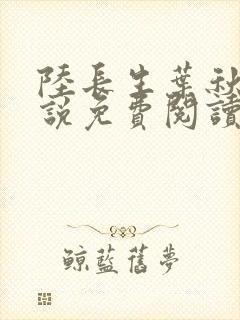 陸長生葉秋
說免費閱讀
鯨藍舊夢